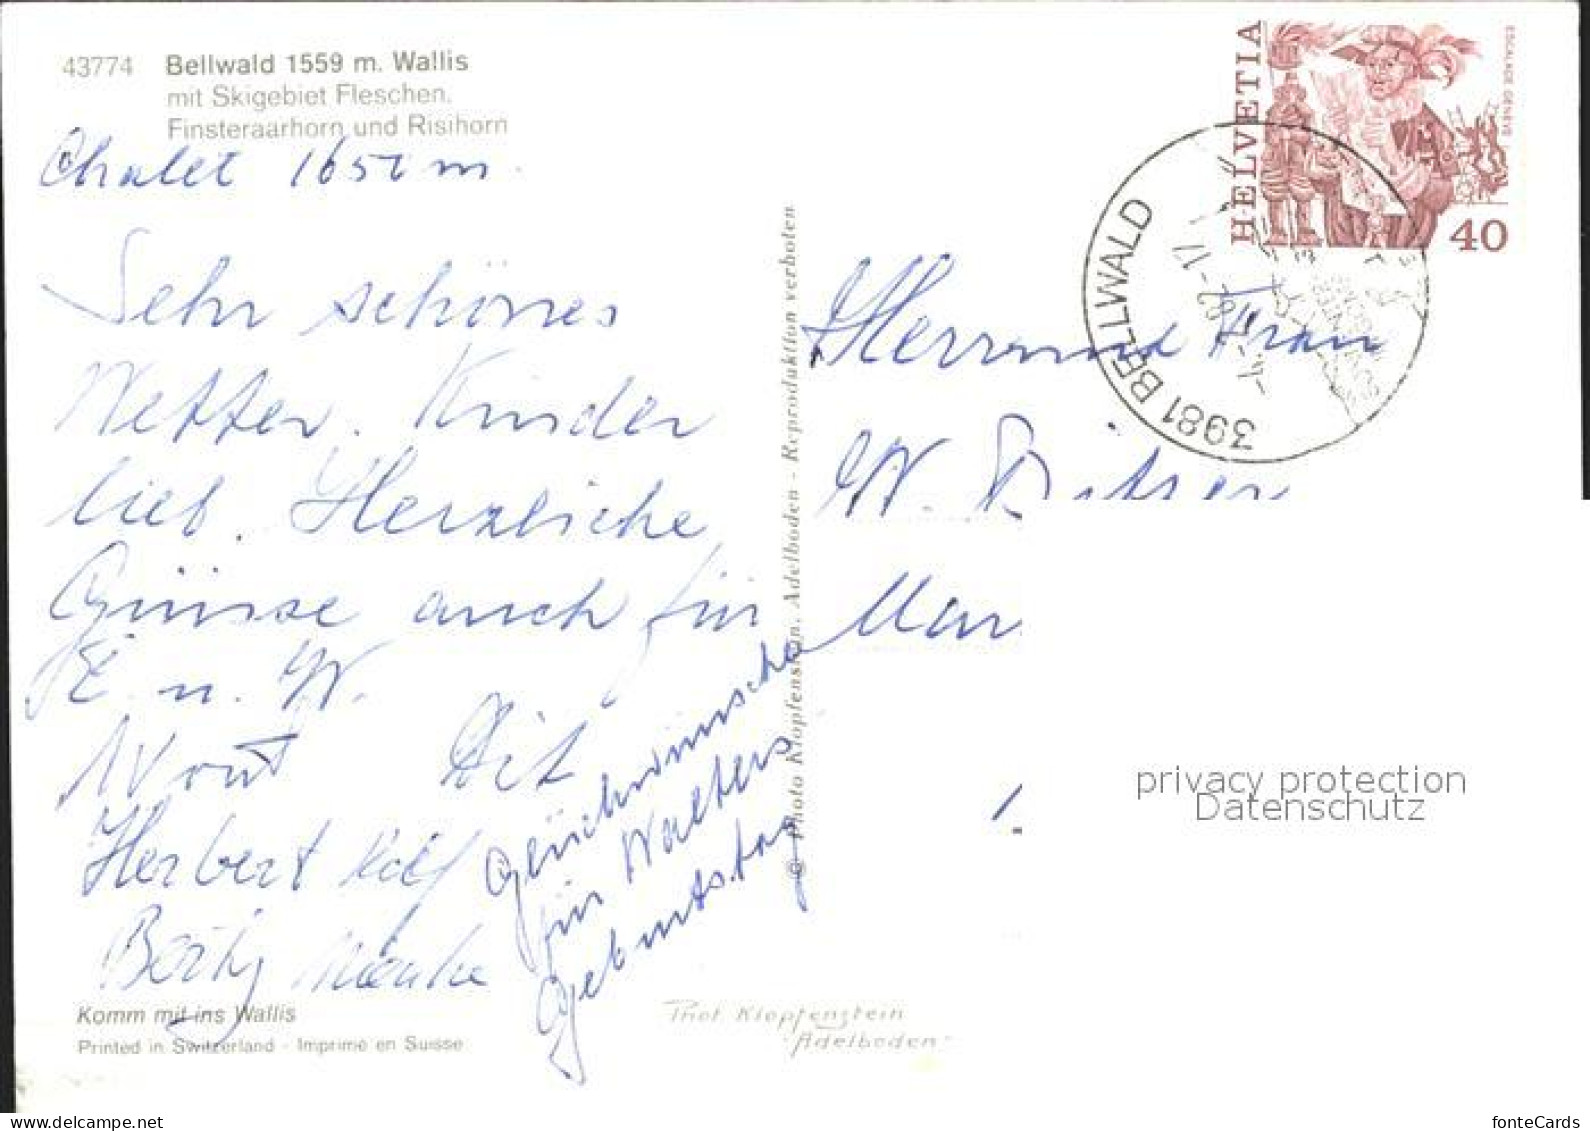 43774 Bellwald 1559 m. Wallis
mit Skigebiet Fleschen,
Finsteraarhorn und Risihorn
Chalet 1650 m.
Sehr schönes
Wetter. Kinder
lieb. Herzliche
Grüsse auch für
E. u. W.
Herbert Rolf
Glückwünsche
für Walters
Geburtstag
Komm mit ins Wallis
Printed in Switzerland - Imprimé en Suisse
© Photo Klopfenstein, Adelboden - Reproduktion verboten
Phot Klopfenstein
Adelboden
HELVETIA
ESCALADE GENÈVE
40
3981 BELLWALD
Herrn und Frau
W.
privacy protection
Datenschutz
Delcampe.net
fonteCards